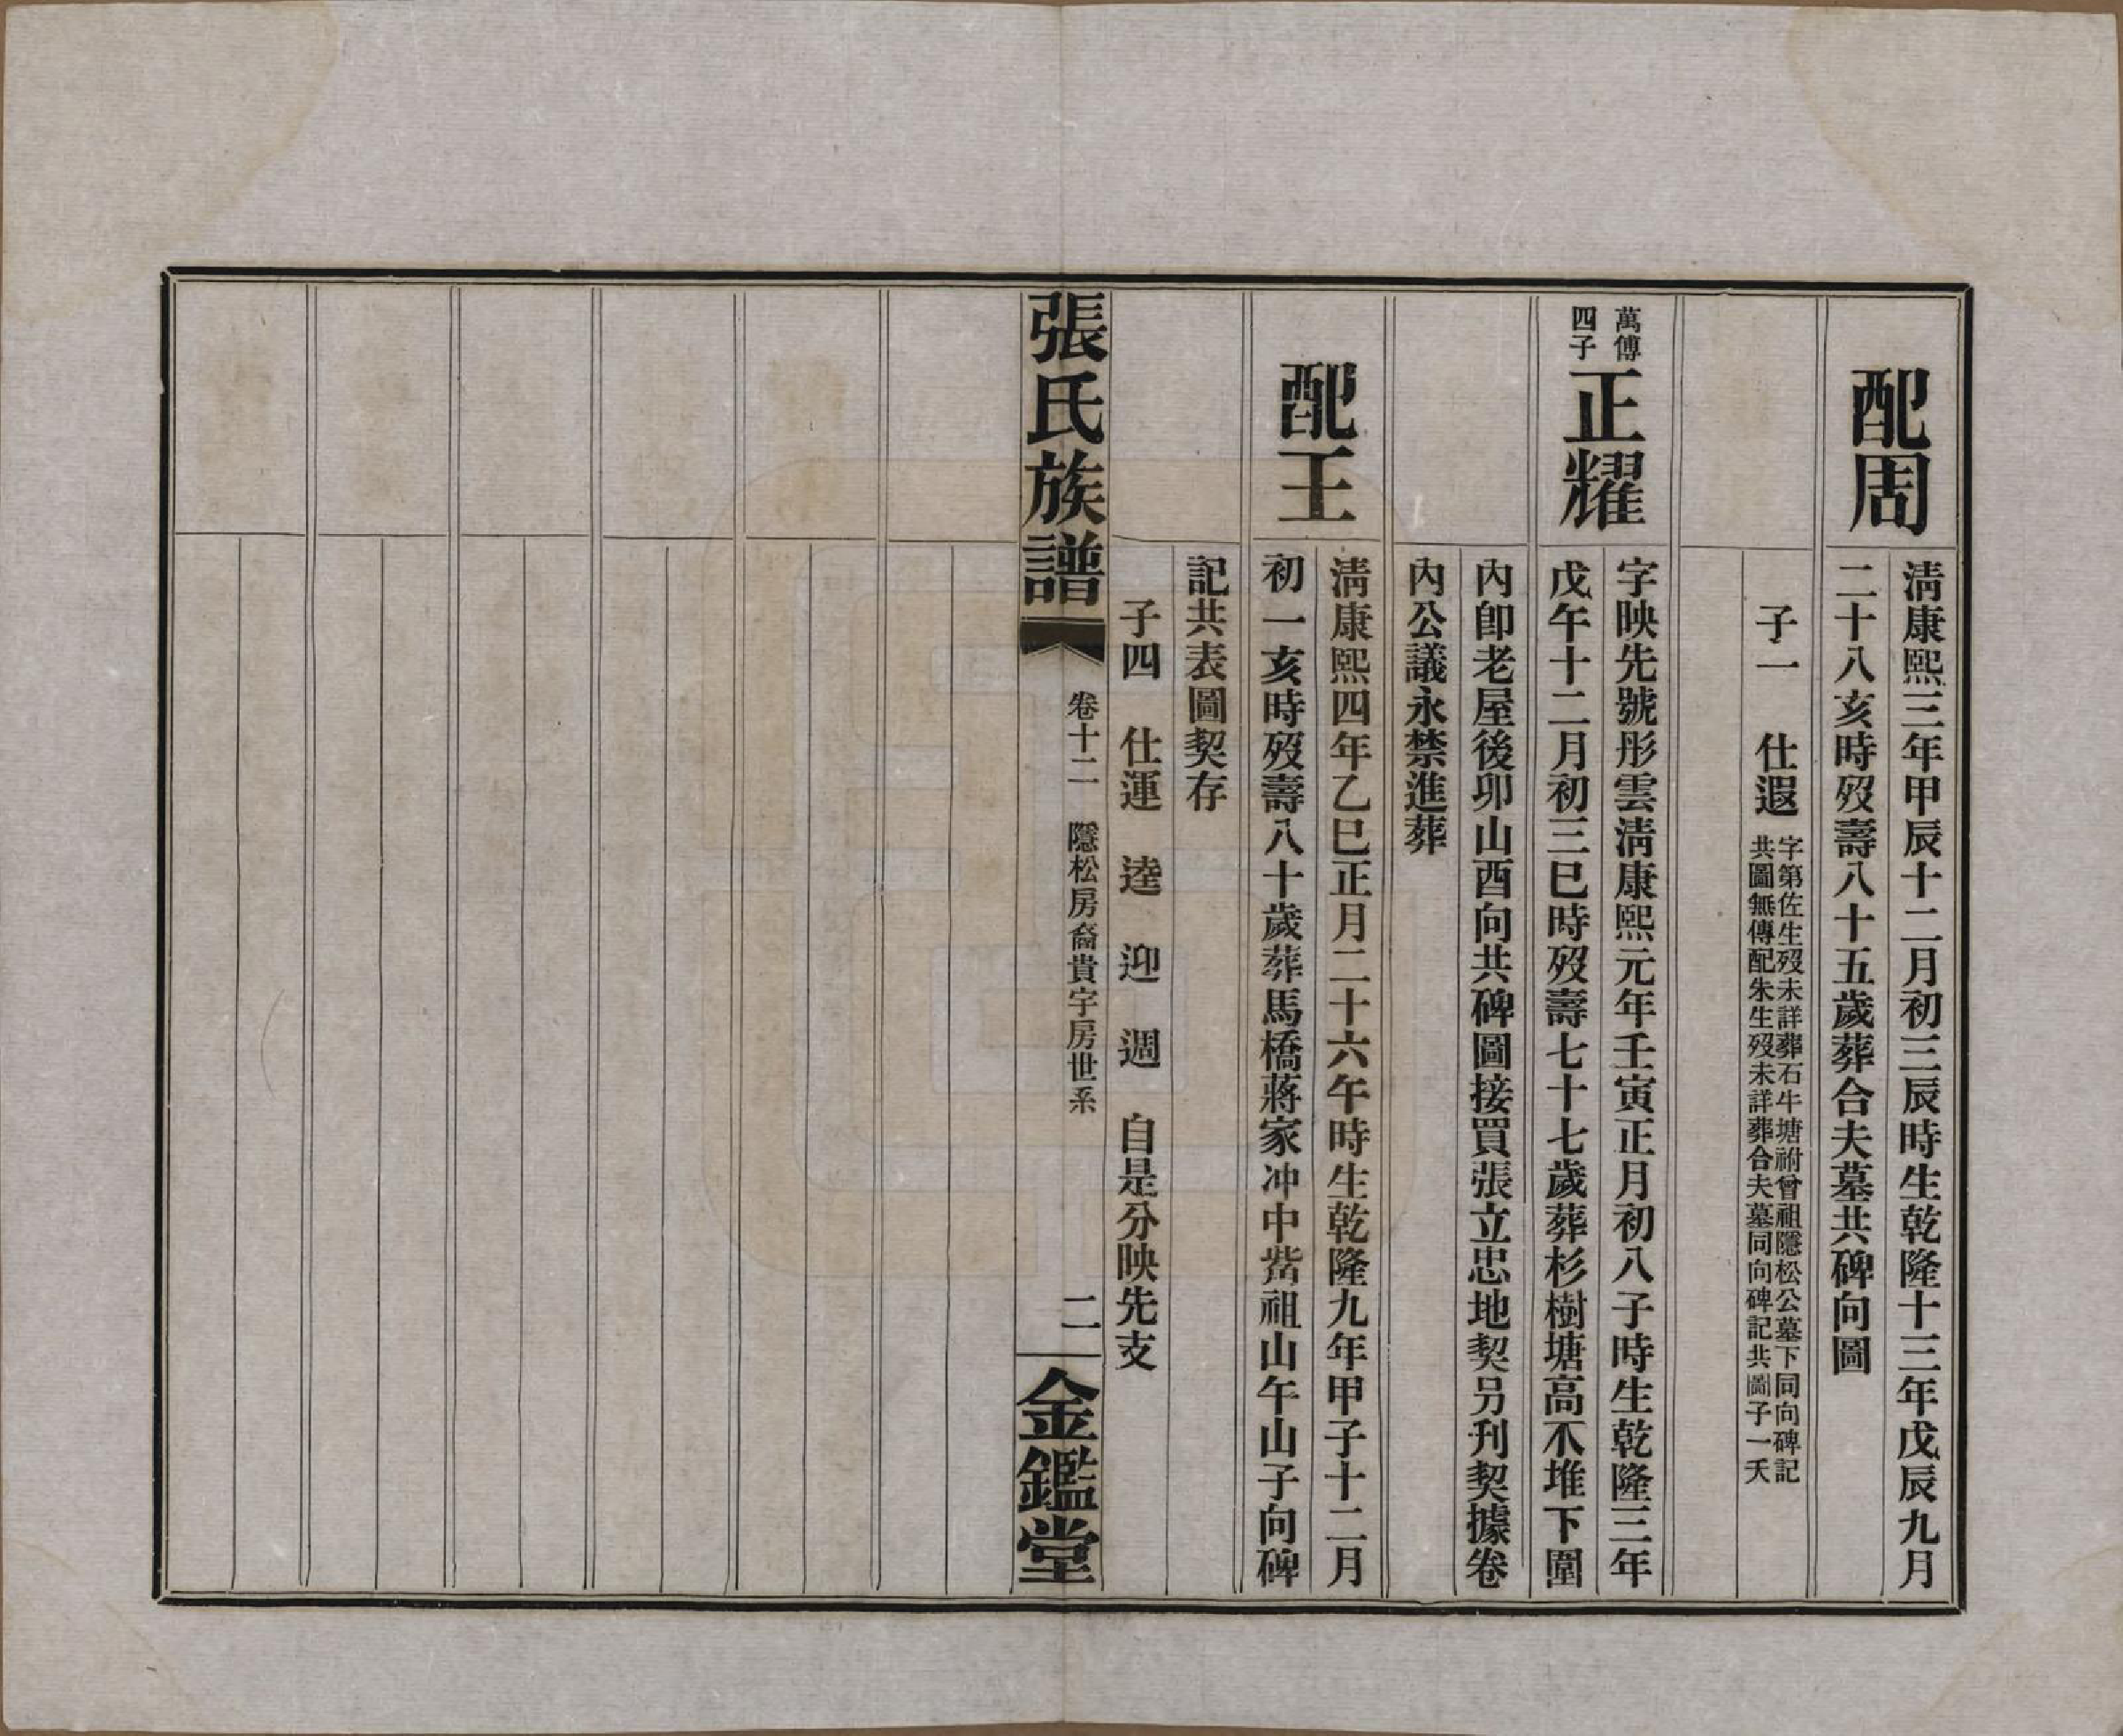 配周
淸康熙三年甲辰十二月初三辰時生乾隆十三年戊辰九月
二十八亥時歿壽八十五歲葬合夫墓共碑向圖
子一　仕遐
字第佐生歿未詳葬石牛塘祔曾祖隱松公墓下同向碑記
共圖無傳配朱生歿未詳葬合夫墓同向碑記共圖子一夭
萬傅
四子
正耀
字映先號彤雲淸康熙元年壬寅正月初八子時生乾隆三年
戊午十二月初三巳時歿壽七十七歲葬杉樹塘高不堆下圍
內卽老屋後卯山酉向共碑圖接買張立忠地契另刋契據卷
內公議永禁進葬
配王
淸康熙四年乙巳正月二十六午時生乾隆九年甲子十二月
初一亥時歿壽八十歲葬馬橋蔣家冲中嵡祖山午山子向碑
記共表圖契存
子四　仕運　逵　迎　週　自是分映先支
張氏族譜
卷十二　隱松房裔貴宇房世系
二
金鑑堂